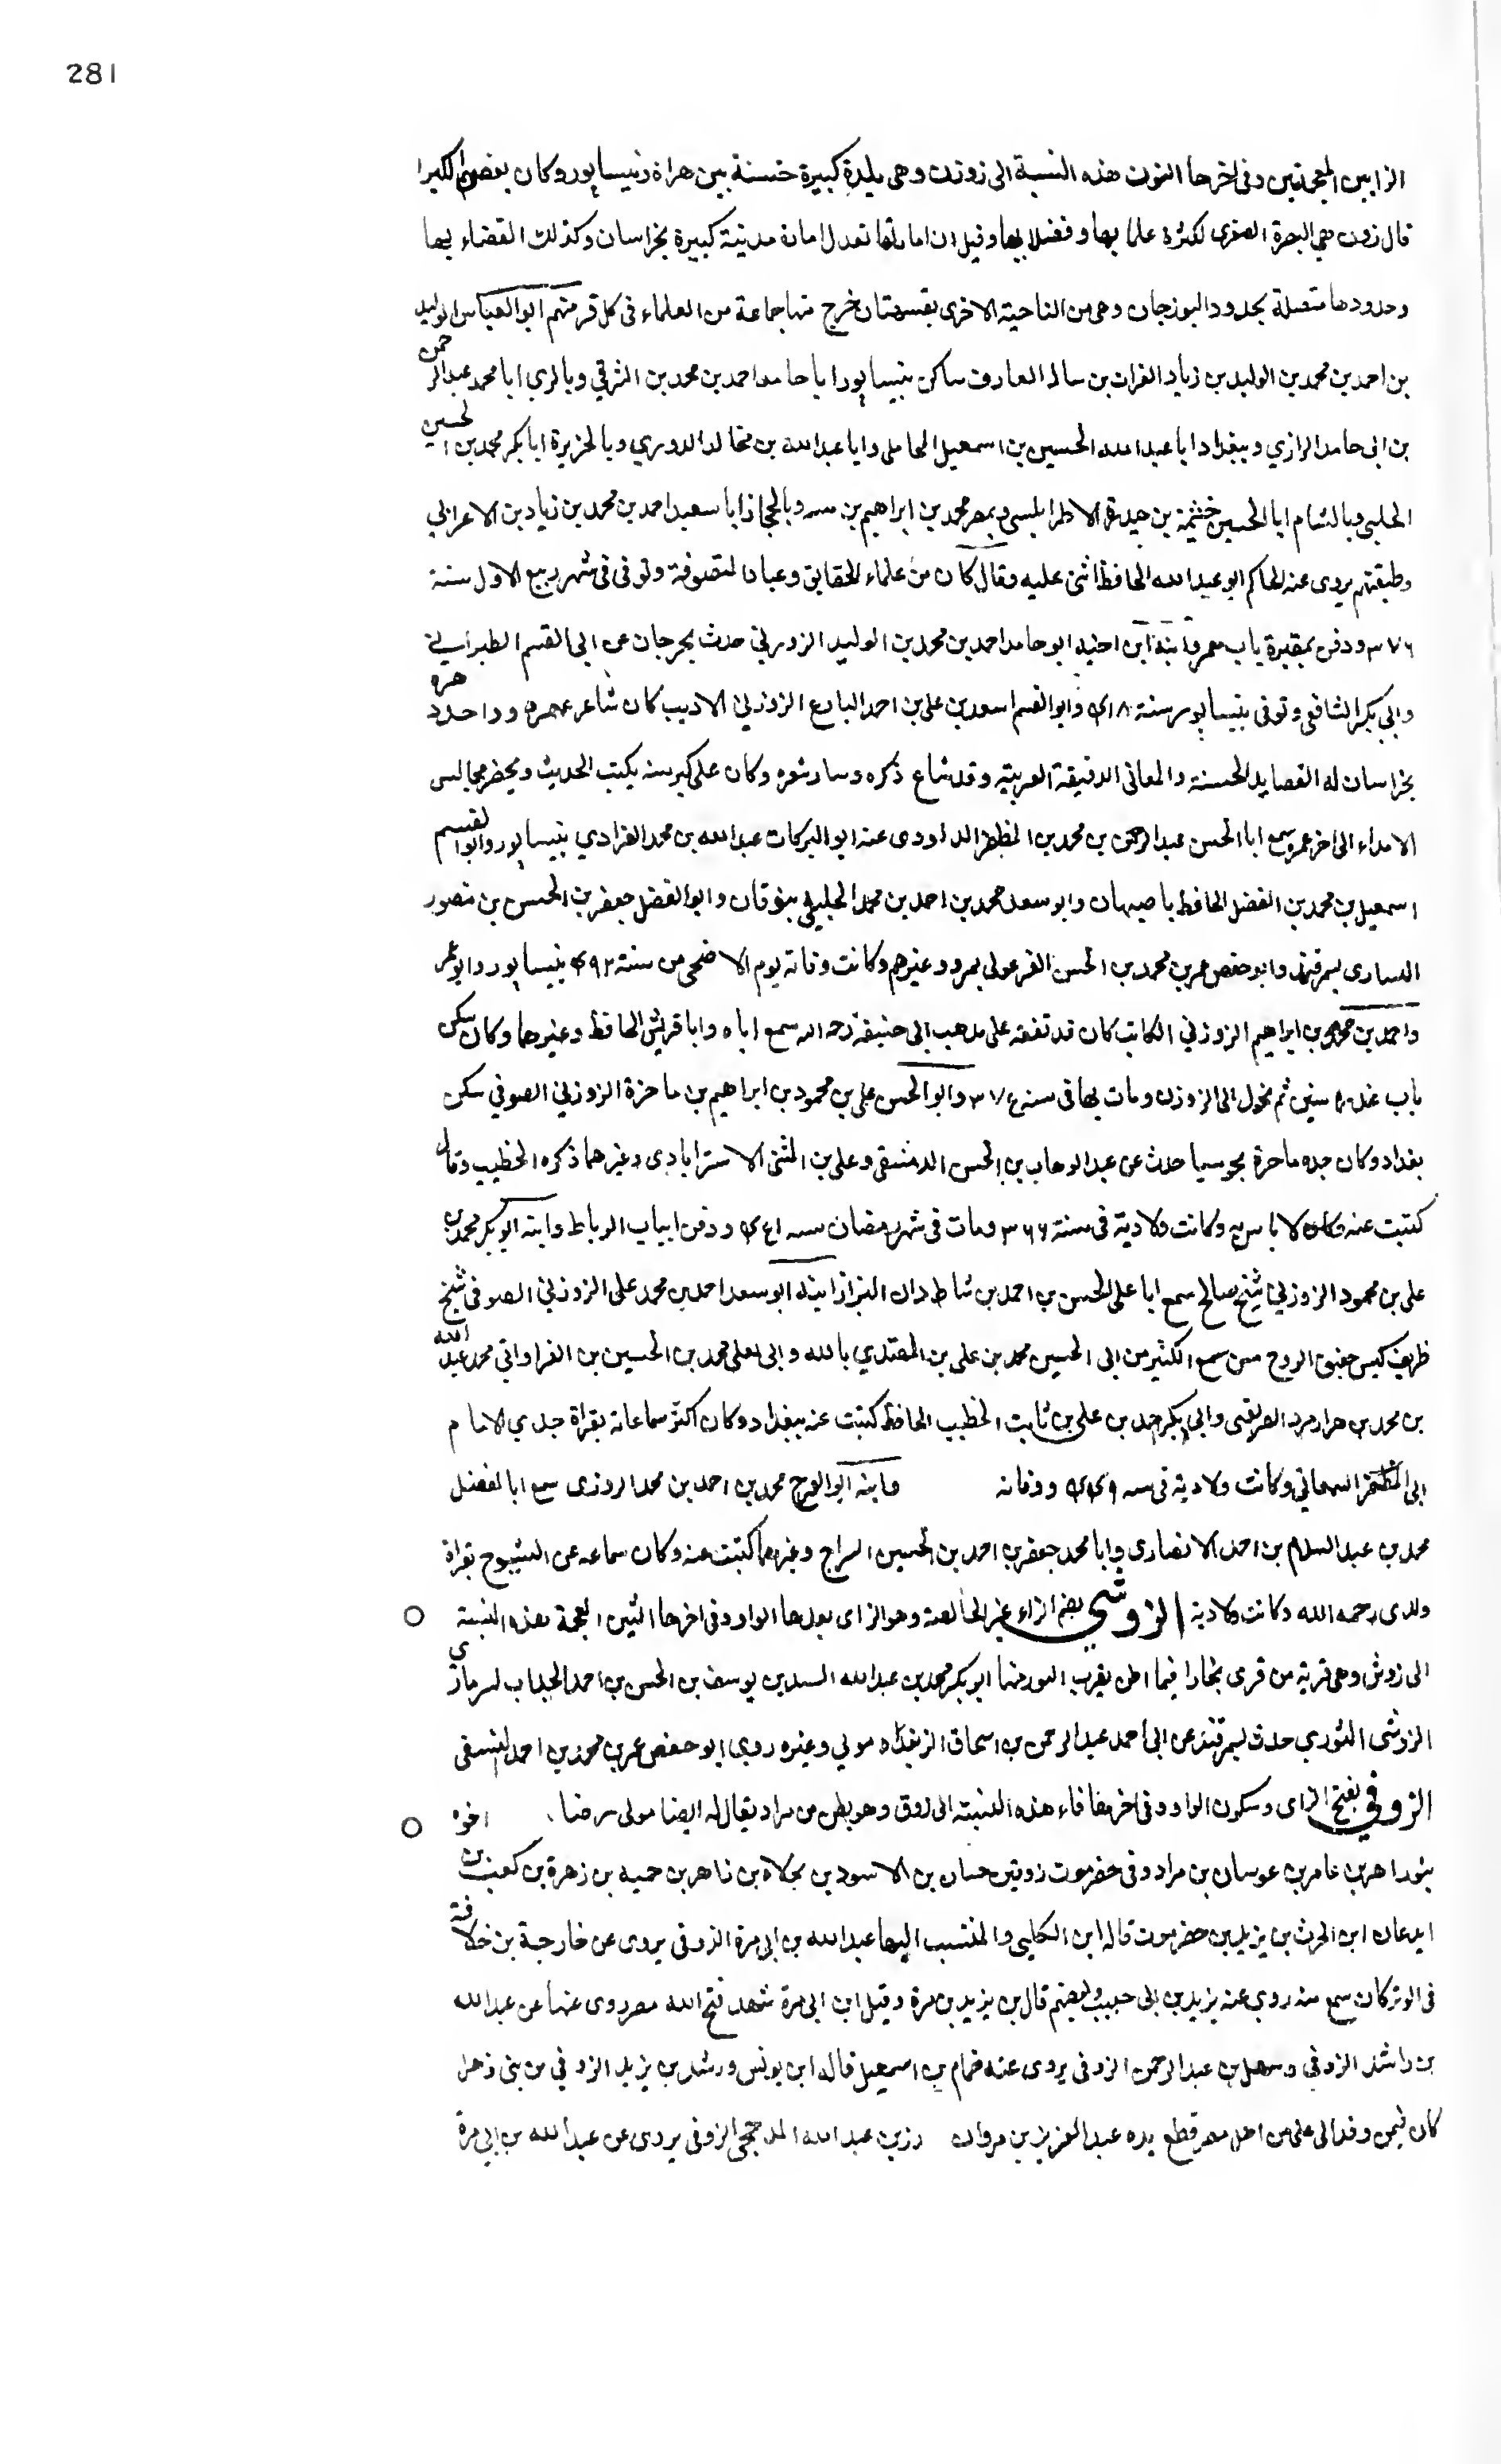 281
الزايين المعجمتين وفى اخرها النون هذه النسبة الى زوزن وهى بلدة كبيرة حسنة بين هراة ونيسابور وكان بعضهم الكبرا
قال زوزن هى البصرة الصغرى لكثرة علمايها وفضلايها وقيل ان اما رتها تعدل امارة مدينة كبيرة بخراسان وكذلك القضاء بها
وحدودها متصلة بحدود البوزجان وهى من الناحية الاخرى بقهستان خرج منها جماعة من العلماء فى كل فن منهم ابو العباس الوليد
بن احمد بن محمد بن الوليد بن زياد الفرات بن سالم العارف ساكن نيسابور ابا حامد احمد بن محمد بن الشرقي وبالري ابا محمد عبد الرحمن
بن ابى حامد الرازي وببغداد ابا عبد الله الحسين بن اسمعيل المحاملى وابا عبد الله بن مخالد الدوري وبالجزيرة ابا بكر محمد بن الحسين
الحلبى وبالشام ابا الحسين خيثمة بن حيدرة الاطرابلسى وبمصر محمد بن ابراهيم بن وبالحجاز ابا سعيد احمد بن محمد بن زياد بن الاعرابي
وطبقتهم يروى عنه الحاكم ابو عبد الله الحافظ اثنى عليه وقال كان من علماء الحقايق وعباد المتصوفة وتوفى فى شهر ربيع الاول سنة
٣٧٦ ودفن بمقبرة باب معمر وابنه ابن اخيه ابو حامد احمد بن محمد بن الوليد الزوزني حدث بجرجان عن ابى القسم الطبراني
وابي بكر الشافعى وتوفى بنيسابور سنة ٤١٨ وابو القسم اسعد بن على بن احمد البارع الزوزني الاديب كان شاعر عصره وواحد دهره
بخراسان له القصايد الحسنة والمعانى الدقيقة الغريبة وقد شاع ذكره وسار شعره وكان على كبر سنه يكتب الحديث ويحضر مجالس
الاملاء الى اخر عمره سمع ابا الحسن عبد الرحمن بن محمد بن المظفر الداودى عنه ابو البركات عبد الله بن محمد الفزادي بنيسابور وابو القسم
اسمعيل بن محمد بن الفضل الحافظ باصبهان وابو سعد محمد بن احمد بن محمد الخليلي بنوقان وابو الفضل جعفر بن الحسن بن منصور
السارى بسمرقند وابو حفص عمر بن محمد بن الحسن الفرغولى بمرو وغيرهم وكانت وفاته يوم الاضحى من سنة ٤٩٢ بنيسابور وابو عمر
واحمد بن محمد بن ابراهيم الزوزني الكاتب كان قد تفقه على مذهب ابى حنيفة رحمه الله سمع اباه وابا قريش الحافظ وغيرهما وكان سكن
باب سنين ثم تحول الى الزوزن ومات بها فى سنة ٣٧٤ وابو الحسن على بن محمود بن ابراهيم بن ماخرة الزوزني الصوفي سكن
بغداد وكان جده ماخرة مجوسيا حدث عن عبد الوهاب بن الحسن الدمشقى وعلى بن المثنى الاستراباذى وغيرهما ذكره الخطيب وقال
كتبت عنه وكان لا باس به وكانت ولادته فى سنة ٣٦٦ ومات فى شهر رمضان سنه ٤٥١ ودفن ابباب الرباط وابنه ابو بكر محمد بن
على بن محمود الزوزني شيخ صالح سمع ابا على الحسن بن احمد بن شاط دان البزاز ابنه ابو سعد احمد بن محمد على الزوزني الصوفى شيخ
ظريف كيس خفيق الروح ممن سمع الكثير من ابى الحسين محمد بن على بن المهتدي بالله وابى يعلى محمد بن الحسين بن الفرا وابي محمد عبد الله
بن محمد بن هزارمرد الصريفنى وابى بكر احمد بن على بن ثابت الخطيب الحافظ كتبت عنه ببغداد وكان اكثر سماعاته بقراة جدي الامام
ابى المظفر السمعاني وكانت ولادته فى سنه ٤٤٩ ووفاته وابنه ابو الفرج محمد بن احمد بن محمد الزوزنى سمع ابا الفضل
محمد بن عبد السلام بن احمد الانصارى وابا محمد جعفر بن احمد بن الحسين السراج وغيرهما كتبت عنه وكان سماعه عن الشيوخ بقراة
ولدى رحمه الله وكانت ولادته الزوشى بضم الزاء غير الخالصة وهو الزاى بعدها الواو وفى اخرها الشين المعجمة هذه النسبة
الى زوش وهى قرية من قرى بخارا فيما اظن بقرب النور منها ابو بكر محمد بن عبد الله السيد بن يوسف بن الحسن بن احمد الجلاب لسرمارى
الزوشى النوري حدث بسمرقند عن ابى احمد عبد الرحمن بن اسحاق الريغدمونى وغيره روى ابو حفص عمر بن محمد بن احمد النسفى
الزوفي بفتح الزاى وسكون الواو وفى اخرها فاء هذه النسبة الى زوف وهو بطن من مراد يقال له ايضا مولى رضا اخوه
بنو زاهر بن عامر بن عوسان بن مراد وفى حضرموت زوفيتن حسان بن الاسود بن بجلاه بن زاهر بن حميه بن زهرة بن كعب بن
ايدعان ابن الحرث بن يزيد بن حضرموت قاله ابن الكلبى والمنتسب اليها عبد الله بن ابى مرة الزوفى يروى عن خارجة بن حذافة
فى الوتر كان سمع منه روى عنه يزيد بن ابى حبيب وبعضهم قال بن يزيد بن مرة وقيل ابن ابى مرة شهد فتح الله مصر روى عنها عن عبد الله
بن راشد الزوفي وسهل بن عبد الرحمن الزوفى يروى عنه ضمام بن اسمعيل قاله ابن يونس ورشد بن يزيد الزوفي من بنى ذهل
كان فيمن وفد الى على من اهل مصر قطع يده عبد العزيز بن مروان رزين عبد الله المذحجى الزوفى يروى عن عبد الله بن ابى مرة